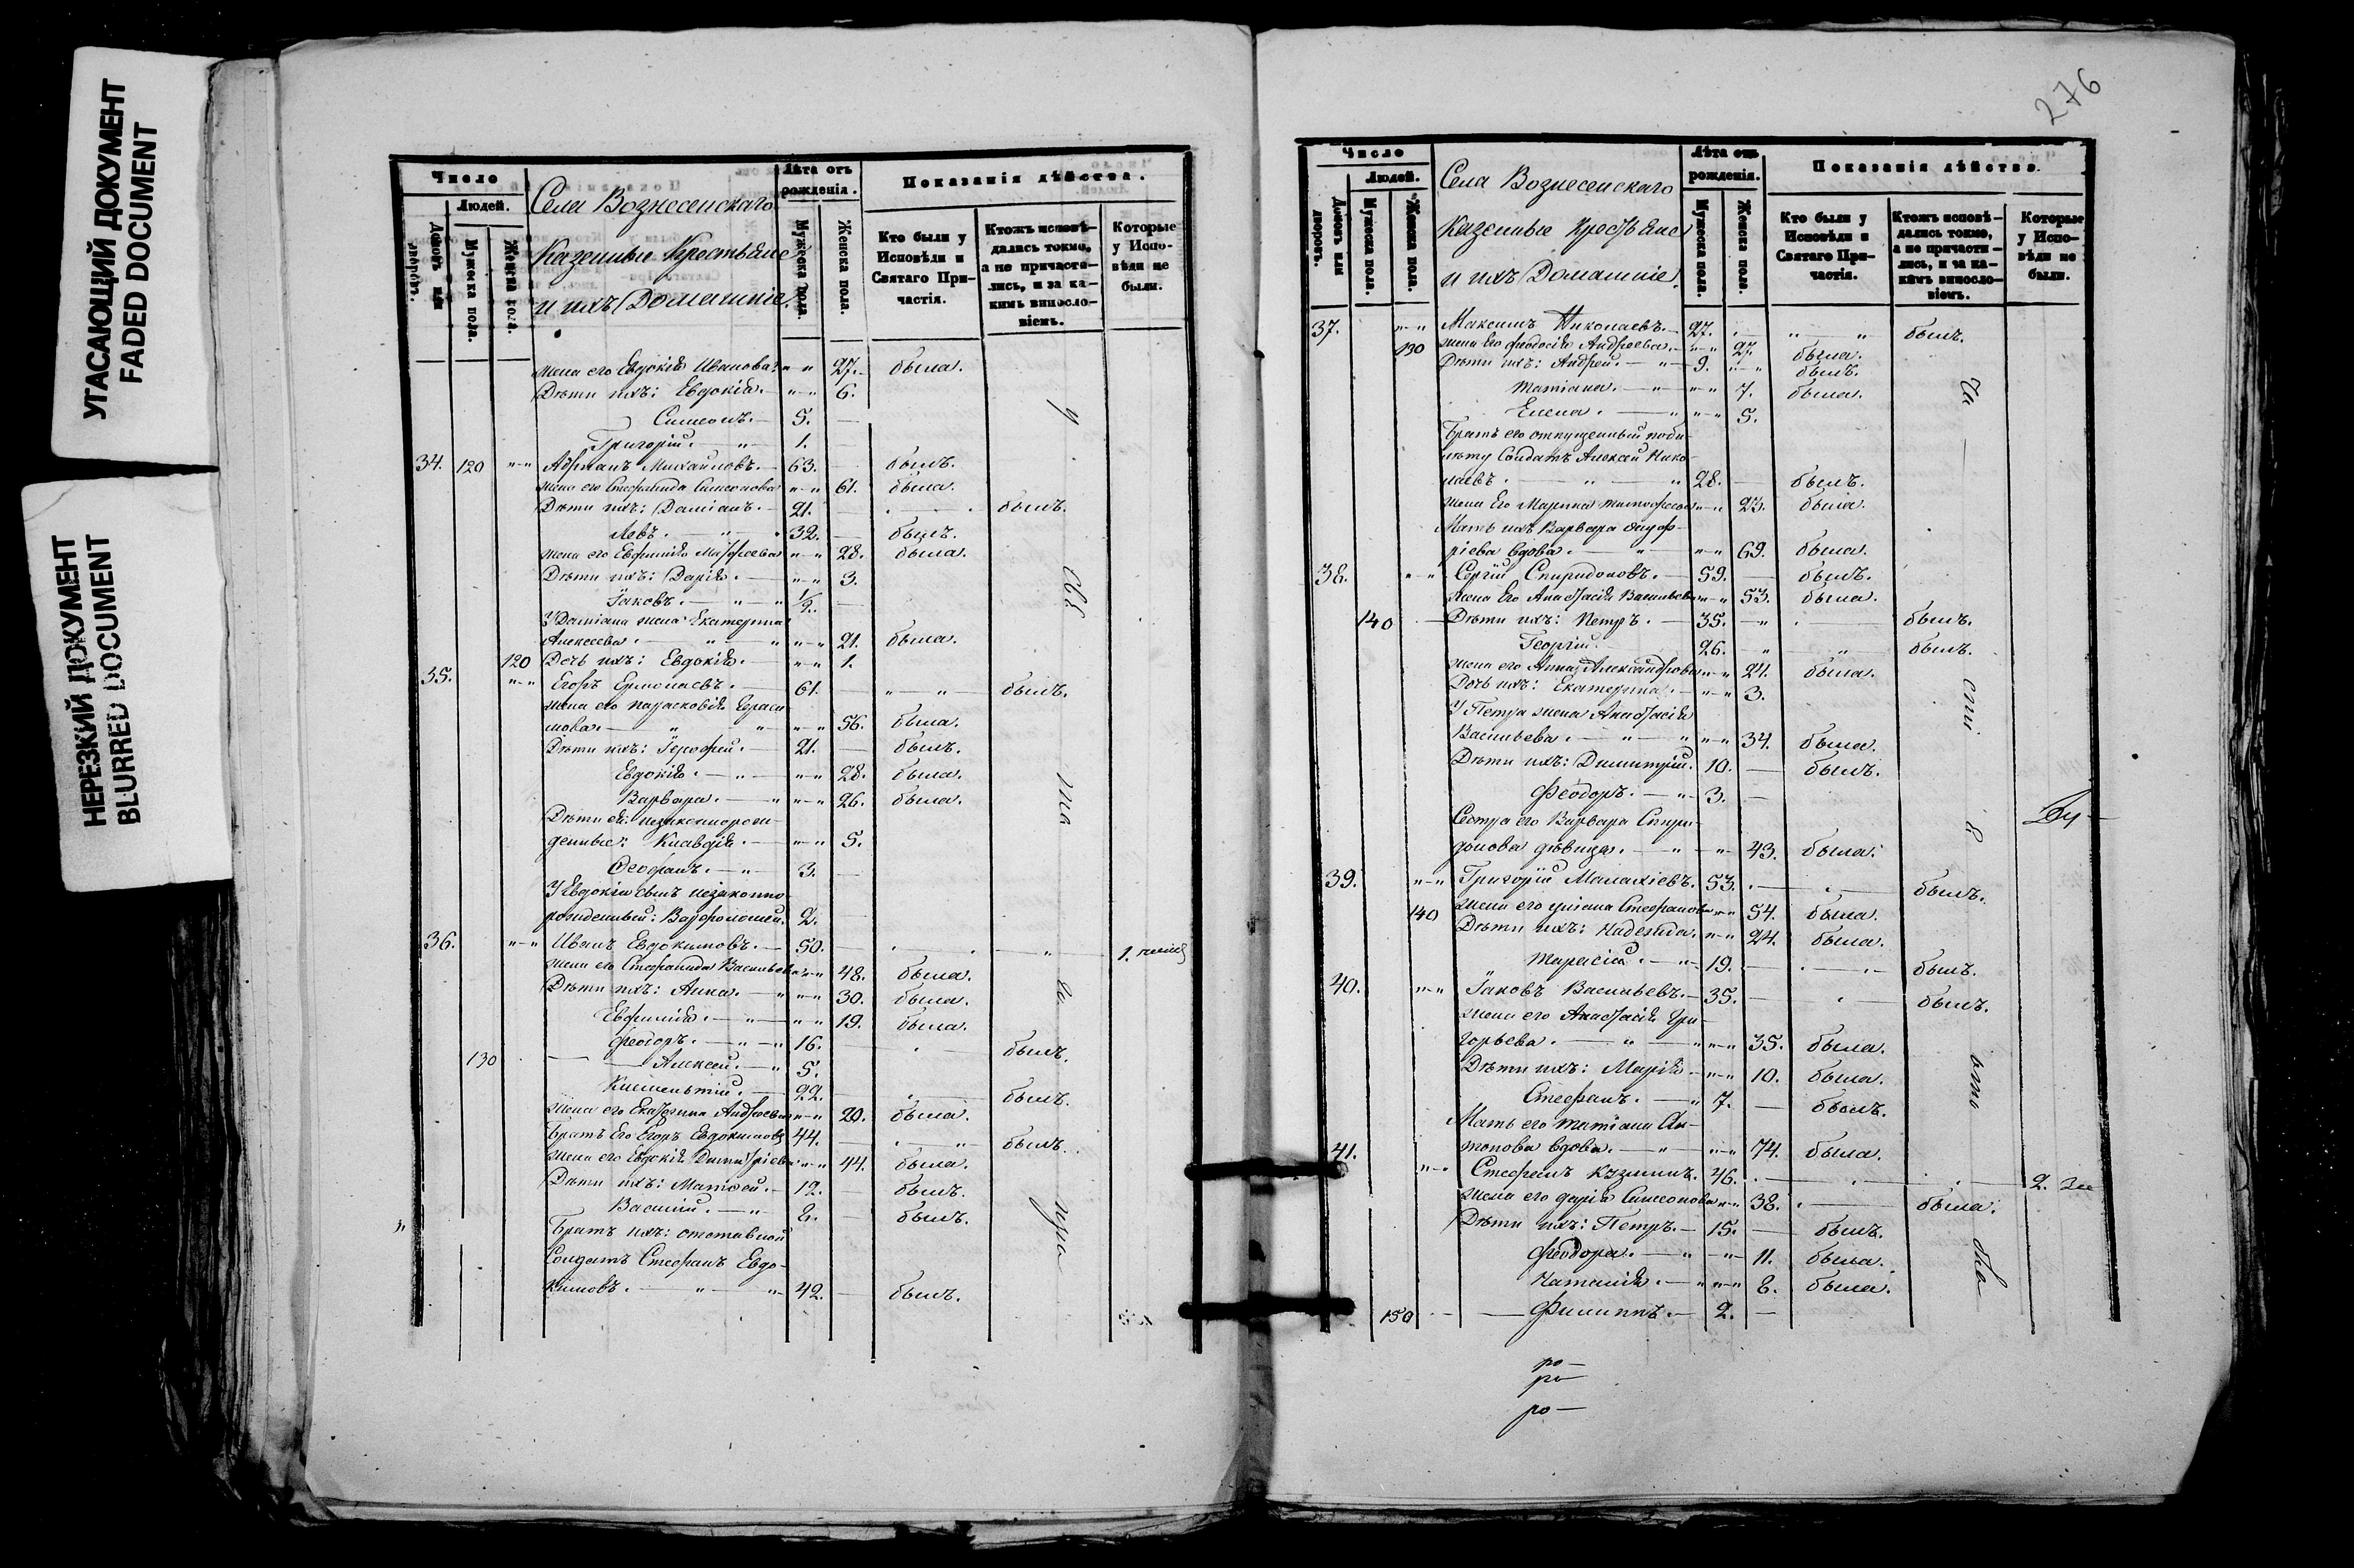 УГАСАЮЩИЙ ДОКУМЕНТ
FADED DOCUMENT
НЕРЕЗКИЙ ДОКУМЕНТ
BLURRED DOCUMENT
Число
Людей.
Домовъ или дворовъ.
Мужеска пола.
Женска пола.
Села Вознесенскаго
Казенные Крестьяне
и ихъ Домашніе
Лѣта отъ рожденія.
Мужеска пола.
Женска пола.
Показанія дѣйства.
Кто были у Исповѣди и Святаго Причастія.
Ктожъ исповѣдались токмо, а не причастились, и за какимъ винословіемъ.
Которые у Исповѣди не были.
жена его Евдокія Иванова " " 27. была.
Дѣти ихъ: Евдокія. " " 6.
Симеонъ. 5.
Григорій. " 1.
34. 120 " " Абрамъ Михаиловъ. 63. былъ.
жена его Стефанида Симеонова " " 61. была.
Дѣти ихъ: Даміанъ. 21. былъ.
Левъ. 32. былъ.
жена его Евфимія Матфеева " " 28. была.
Дѣти ихъ: Дарія. " " 3.
Іаковъ. " " 1/2.
У Даміана жена Екатерина
Алексеева. " " " " 21. была.
120 Дочь ихъ: Евдокія. " " 1.
35. " " Егоръ Ермолаевъ. 61. " " былъ.
жена его Парасковія Гераси-
мова. " " " " 56. была.
Дѣти ихъ: Іерофей. 21. былъ.
Евдокія. " " " 28. была.
Варвара. " " " 26. была.
Дѣти ей: незаконнорож-
денные: Клавдія. " " 5.
Феофанъ. " 3.
У Евдокіи сынъ незаконно
рожденный: Варфоломей. 2.
36. " " Иванъ Евдокимовъ. 50. "
жена его Стефанида Васильева " " 48. была.
Дѣти ихъ: Анна. " " " 30. была.
Евфимія. " " " 19. была.
Феодоръ. " " 16. былъ.
130 Алексей. " 5.
Климентій. 22. былъ.
жена его Екатерина Андреева " " 20. была.
Братъ Его Егоръ Евдокимовъ 44. " былъ.
жена его Евдокія Димитріева " " 44. была.
Дѣти ихъ: Матвей. 12. былъ.
Василій. " 8. былъ.
Братъ ихъ: отставной
Солдатъ Стефанъ Евдо-
кимовъ. " " 42. былъ.
276
Число
Людей.
Домовъ или дворовъ.
Мужеска пола.
Женска пола.
Села Вознесенскаго
Казенные Крестьяне
и ихъ Домашніе
Лѣта отъ рожденія.
Мужеска пола.
Женска пола.
Показанія дѣйства.
Кто были у Исповѣди и Святаго Причастія.
Ктожъ исповѣдались токмо, а не причастились, и за какимъ винословіемъ.
Которые у Исповѣди не были.
37. " " Максимъ Николаевъ. 27. " " былъ.
130 жена Его Феодосія Андреева. " " 27. была.
Дѣти ихъ: Андрей. " 9. " " былъ.
Татіана. " " " 7. была.
Елена. " " " 5.
Братъ его отпущенный по би-
лету Солдатъ Алексей Нико-
лаевъ. " " 28. былъ.
жена Его Марина Тимофеева " " 23. была.
Мать ихъ Варвара
вдова. " " " 69. была.
38. " " Сергій Спиридоновъ. 59. былъ.
жена Его Анастасія Васильева " " 53. была.
140 Дѣти ихъ: Петръ. 35. " былъ.
Георгій. 26. " " былъ.
жена его Анна Александрова " " 24. была.
Дочь ихъ: Екатерина. " " 3.
У Петра жена Анастасія
Васильева. " " " " 34. была.
Дѣти ихъ: Димитрій. 10. былъ.
Феодоръ. " 3.
Сестра его Варвара Спири-
донова дѣвица. " " 43. была.
39. " " Григорій Малахіевъ. 53. " былъ.
140 жена его Стефанова " " 54. была.
Дѣти ихъ: Надежда. " " 24. была.
Тарасій. " 19. " былъ.
40. " " Іаковъ Васильевъ. 35. " былъ.
жена его Анастасія Гри-
горьева. " " " " 35. была.
Дѣти ихъ: Марія. " " 10. была.
Стефанъ. " 7. былъ.
Мать его Татіана Ан-
тонова вдова. " " " 74. была.
41. " " Стефанъ Кузминъ. 46. " "
жена его Дарія Симеонова " " 38. была.
Дѣти ихъ: Петръ. 15. былъ.
Феодора. " " 11. была.
Наталія. " " " 8. была.
150 Филиппъ. 2.
ро—
ро—
ро—